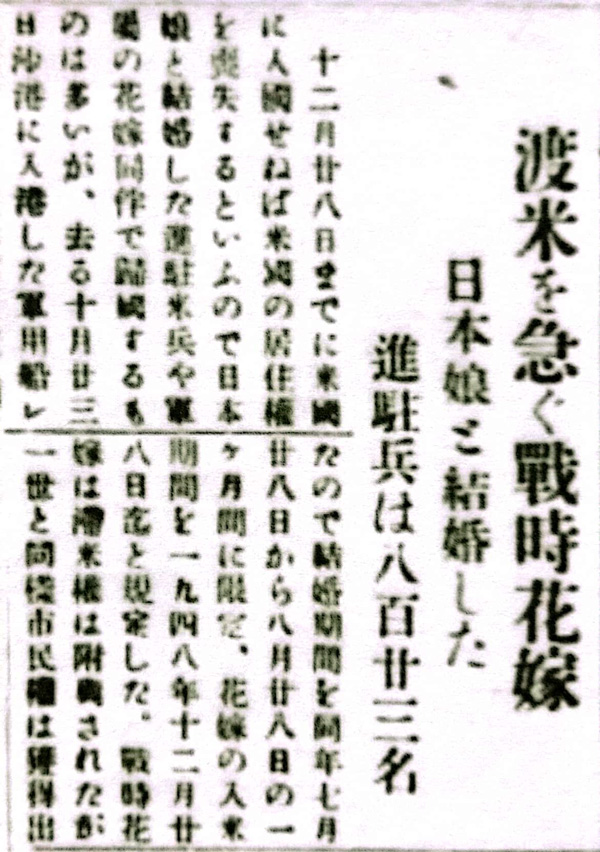 渡米を急ぐ戰時花嫁
日本娘と結婚した
進駐兵は八百廿三名
十二月廿八日までに米國
に入國せねば米國の居住權
を喪失するといふので日本
娘と結婚した進駐米兵や軍
屬の花嫁同伴で歸國するも
のは多いが、去る十月廿三
日沙港に入港した軍用船レ
たので結婚期間を同年七月
廿八日から八月廿八日の一
ヶ月間に限定、花嫁の入米
期間を一九四八年十二月廿
八日迄と規定した。戰時花
嫁は滯米權は附與されたが
一世と同樣市民權は獲得出